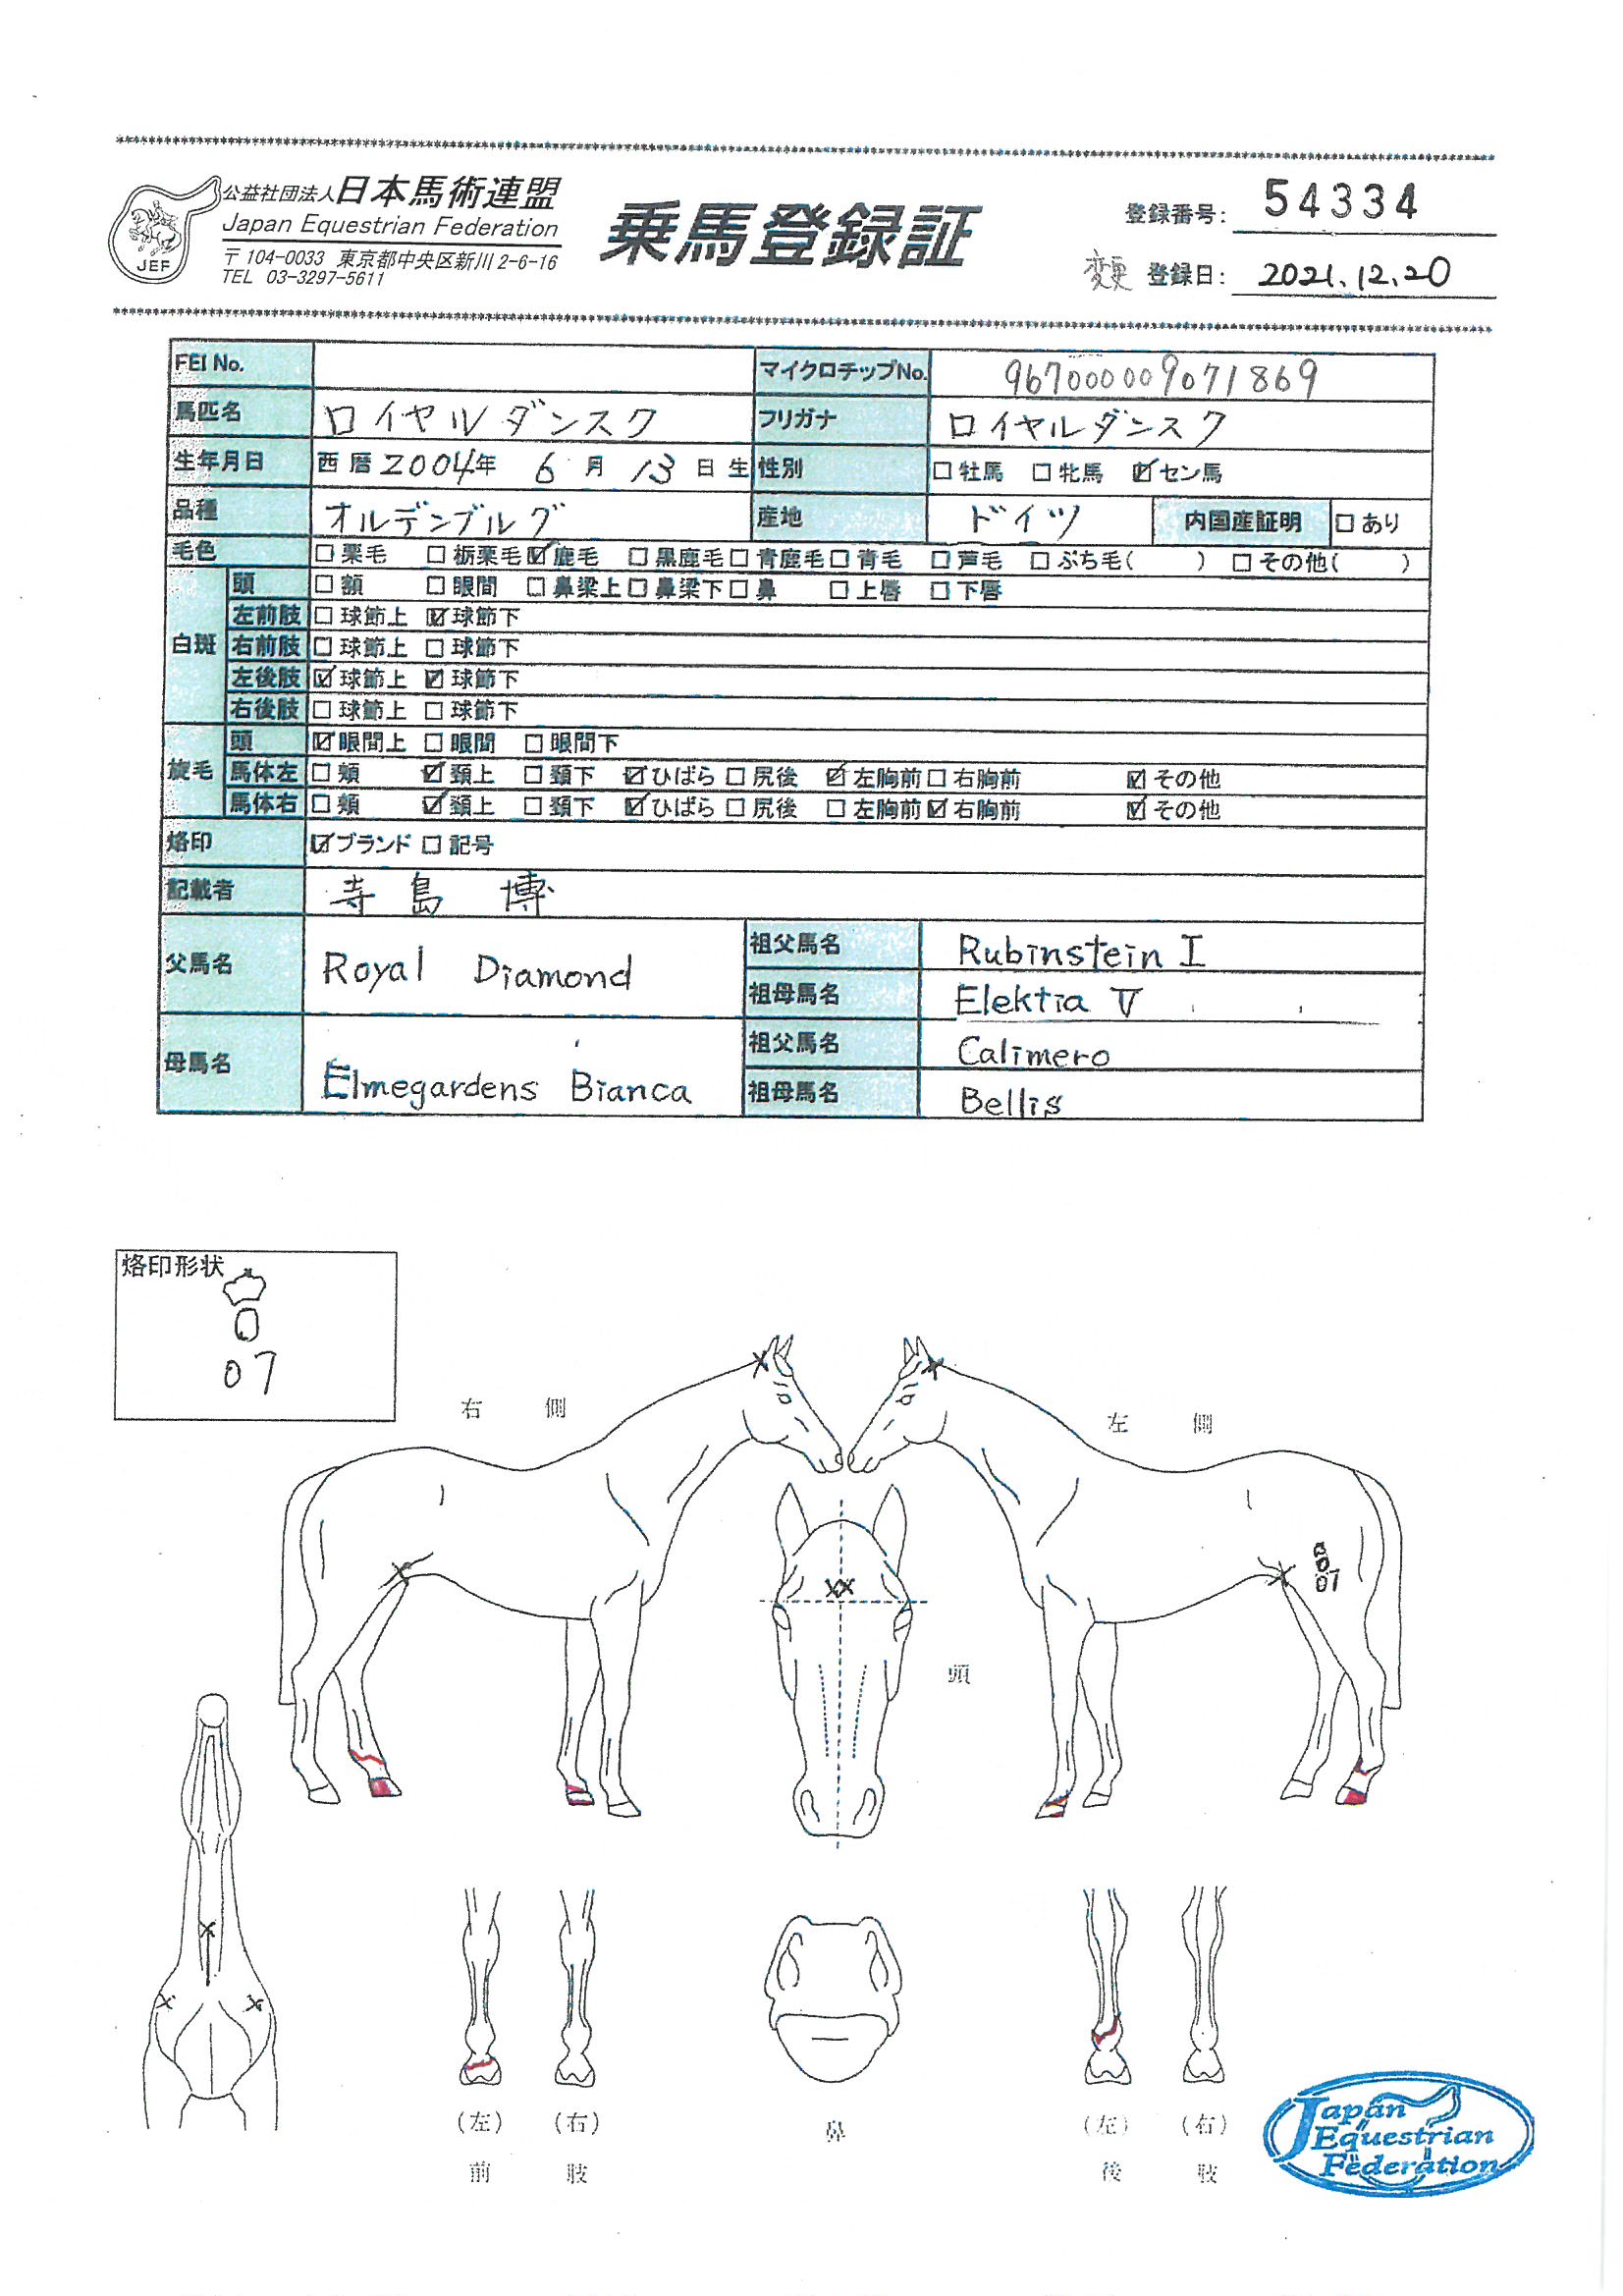 公益社団法人日本馬術連盟
Japan Equestrian Federation
〒104-0033 東京都中央区新川2-6-16
TEL 03-3297-5611
JEF
乗馬登録証
登録番号: 54334
変更 登録日: 2021.12.20
FEI No. マイクロチップNo. 967000009071869
馬匹名 ロイヤルダンスク フリガナ ロイヤルダンスク
生年月日 西暦2004年 6月 13日生 性別 □牡馬 □牝馬 ☑セン馬
品種 オルデンブルグ 産地 ドイツ 内国産証明 □あり
毛色 □栗毛 □栃栗毛 ☑鹿毛 □黒鹿毛 □青鹿毛 □青毛 □芦毛 □ぶち毛( ) □その他( )
白斑
頭 □額 □眼間 □鼻梁上 □鼻梁下 □鼻 □上唇 □下唇
左前肢 □球節上 ☑球節下
右前肢 □球節上 □球節下
左後肢 ☑球節上 ☑球節下
右後肢 □球節上 □球節下
旋毛
頭 ☑眼間上 □眼間 □眼間下
馬体左 □頬 ☑頚上 □頚下 ☑ひばら □尻後 ☑左胸前 □右胸前 ☑その他
馬体右 □頬 ☑頚上 □頚下 ☑ひばら □尻後 □左胸前 ☑右胸前 ☑その他
烙印 ☑ブランド □記号
記載者 寺島 博
父馬名 Royal Diamond 祖父馬名 Rubinstein I
祖母馬名 Elektia V
母馬名 Elmegardens Bianca 祖父馬名 Calimero
祖母馬名 Bellis
烙印形状
O
07
右 側
左 側
07
頭
(左) (右)
前 肢
鼻
(左) (右)
後 肢
Japan
Equestrian
Federation